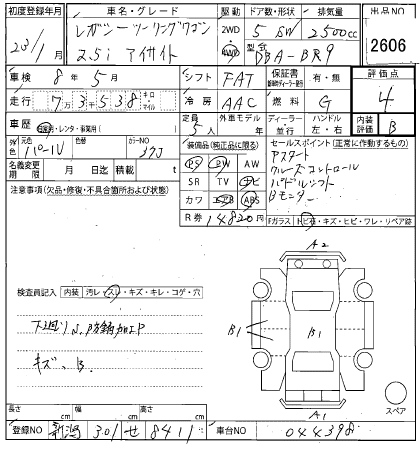 初度登録年月 車名・グレード 駆動 ドア数・形状 排気量 出品NO
23/1月 レガシーツーリングワゴン 2.5i アイサイト 2WD 4WD 5 SW 2500cc 2606
型式 DBA-BR9
車検 8年5月 シフト FAT 保証書 有・無 評価点
走行 7万3千538 キロ・マイル 冷房 AAC 燃料 G 4
車歴 自家用・レンタ・事業用( ) 定員 5人 外車モデル 年 ディーラー・並行 ハンドル 左・右 内装評価 B
外色 元色 パールV 色替 カラーNO 37J
名義変更期限 月 日 積載 t
装備品(純正品に限る) セールスポイント(正常に作動するもの)
PS PW AW アスタート
SR TV ナビ クルーズコントロール
カワ エアB ABS パドルシフト
Bモニター
R券 14820円 Fガラス トビ石・キズ・ヒビ・ワレ・リペア跡
注意事項(欠品・修復・不具合箇所および状態)
A2
検査員記入 内装 汚レ・スレ・キズ・キレ・コゲ・穴
下廻り S.P防錆加工P
B1 B1
キズ、B.
スペア
A1
長さ cm 幅 cm 高さ cm
登録NO 新潟 301 せ 8411 車台NO 044398